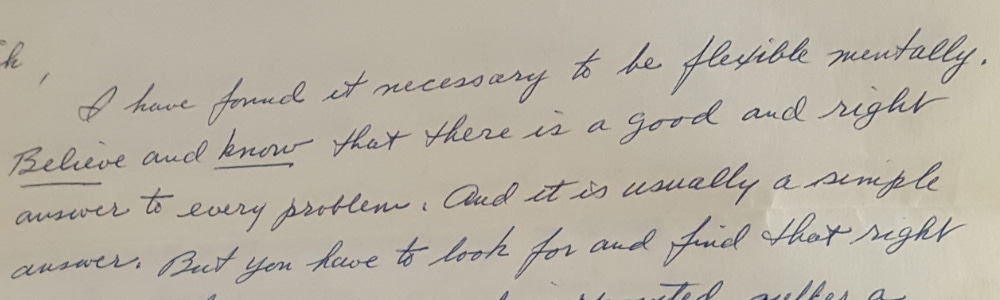 I have found it necessary to be flexible mentally.
Believe and know that there is a good and right
answer to every problem. And it is usually a simple
answer. But you have to look for and find that right